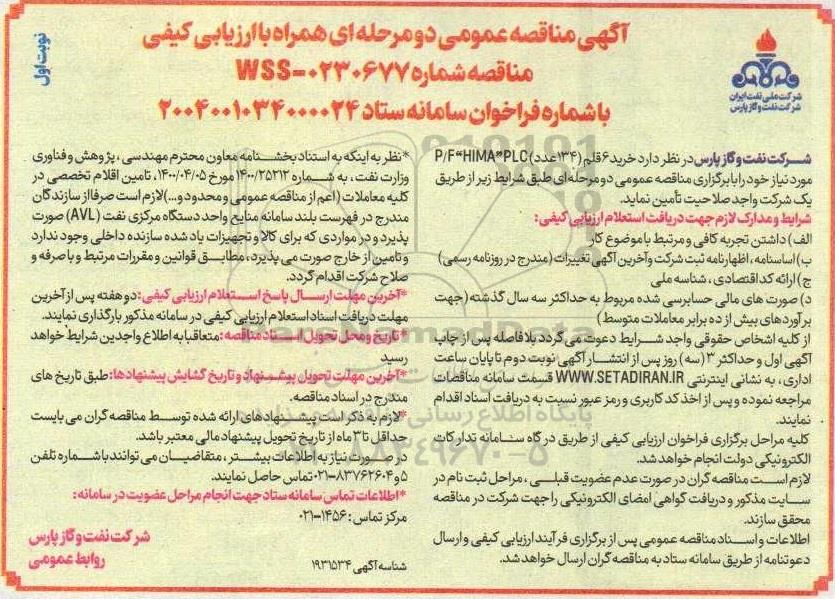 آگهی مناقصه عمومی دو مرحله ای همراه با ارزیابی کیفی
مناقصه شماره WSS-۰۲۳۰۶۷۷
با شماره فراخوان سامانه ستاد ۲۰۰۴۰۰۱۰۳۴۰۰۰۰۲۴
نوبت اول
شرکت ملی نفت ایران
شرکت نفت و گاز پارس
شرکت نفت و گاز پارس در نظر دارد خرید ۶ قلم (۱۳۴ عدد) P/F "HIMA" PLC
مورد نیاز خود را با برگزاری مناقصه عمومی دو مرحله ای طبق شرایط زیر از طریق
یک شرکت واجد صلاحیت تأمین نماید.
شرایط و مدارک لازم جهت دریافت استعلام ارزیابی کیفی:
الف) داشتن تجربه کافی و مرتبط با موضوع کار
ب) اساسنامه، اظهارنامه ثبت شرکت و آخرین آگهی تغییرات (مندرج در روزنامه رسمی)
ج) ارائه کد اقتصادی، شناسه ملی
د) صورت های مالی حسابرسی شده مربوط به حداکثر سه سال گذشته (جهت
برآوردهای بیش از ده برابر معاملات متوسط)
از کلیه اشخاص حقوقی واجد شرایط دعوت می گردد بلافاصله پس از چاپ
آگهی اول و حداکثر ۳ (سه) روز پس از انتشار آگهی نوبت دوم تا پایان ساعت
اداری، به نشانی اینترنتی WWW.SETADIRAN.IR قسمت سامانه مناقصات
مراجعه نموده و پس از اخذ کد کاربری و رمز عبور نسبت به دریافت اسناد اقدام
نمایند.
کلیه مراحل برگزاری فراخوان ارزیابی کیفی از طریق درگاه سامانه تدارکات
الکترونیکی دولت انجام خواهد شد.
لازم است مناقصه گران در صورت عدم عضویت قبلی، مراحل ثبت نام در
سایت مذکور و دریافت گواهی امضای الکترونیکی را جهت شرکت در مناقصه
محقق سازند.
اطلاعات و اسناد مناقصه عمومی پس از برگزاری فرآیند ارزیابی کیفی و ارسال
دعوتنامه از طریق سامانه ستاد به مناقصه گران ارسال خواهد شد.
*نظر به اینکه به استناد بخشنامه معاون محترم مهندسی، پژوهش و فناوری
وزارت نفت، به شماره ۱۴۰۰/۲۵۲۱۲ مورخ ۱۴۰۰/۰۴/۰۵، تامین اقلام تخصصی در
کلیه معاملات (اعم از مناقصه عمومی و محدود و...) لازم است صرفا از سازندگان
مندرج در فهرست بلند سامانه منابع واحد دستگاه مرکزی نفت (AVL) صورت
پذیرد و در مواردی که برای کالا و تجهیزات یاد شده سازنده داخلی وجود ندارد
و تامین از خارج صورت می پذیرد، مطابق قوانین و مقررات مرتبط و با صرفه و
صلاح شرکت اقدام گردد.
*آخرین مهلت ارسال پاسخ استعلام ارزیابی کیفی: دو هفته پس از آخرین
مهلت دریافت اسناد استعلام ارزیابی کیفی در سامانه مذکور بارگذاری نمایند.
*تاریخ و محل تحویل اسناد مناقصه: متعاقبا به اطلاع واجدین شرایط خواهد
رسید
*آخرین مهلت تحویل پیشنهاد و تاریخ گشایش پیشنهادها: طبق تاریخ های
مندرج در اسناد مناقصه.
*لازم به ذکر است پیشنهادهای ارائه شده توسط مناقصه گران می بایست
حداقل تا ۳ ماه از تاریخ تحویل پیشنهاد مالی معتبر باشد.
در صورت نیاز به اطلاعات بیشتر، متقاضیان می توانند با شماره تلفن
۵ و ۸۳۷۶۲۶۰۴-۰۲۱ تماس حاصل نمایند.
*اطلاعات تماس سامانه ستاد جهت انجام مراحل عضویت در سامانه:
مرکز تماس: ۱۴۵۶-۰۲۱
شناسه آگهی ۱۹۳۱۵۳۴
شرکت نفت و گاز پارس
روابط عمومی
ParsNamadData
پایگاه اطلاع رسانی
۸۸۳۴۹۶۷۰-۵